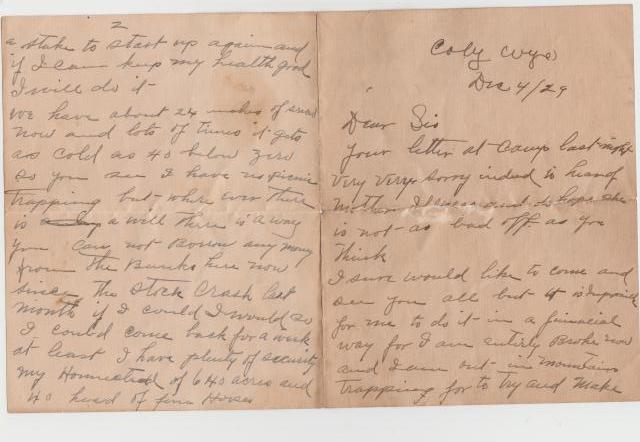 Cody Wyo
Dec 4/29
Dear Sis
Your letter at camp last night
very very sorry indeed is hear of
Mothers Illness and is hope she
is not as bad off as you
think
I sure would like to come and
see you all but it is impossible
for me to do it in a financial
way for I am entirly Broke now
and I am out in Mountains
trapping for to try and Make
2
a stake to start up again and
if I can keep my health good
I will do it
We have about 24 inches of snow
now and lots of times it gets
as cold as 40 below zero
so you see I have no picnic
trapping but where ever there
is a will there is a way
you can not Borrow any money
from the Banks here now
since the Stock Crash last
month if I could I would so
I could come back for a week
at least I have plenty of security
my Homestead of 640 acres and
40 head of fine Horses